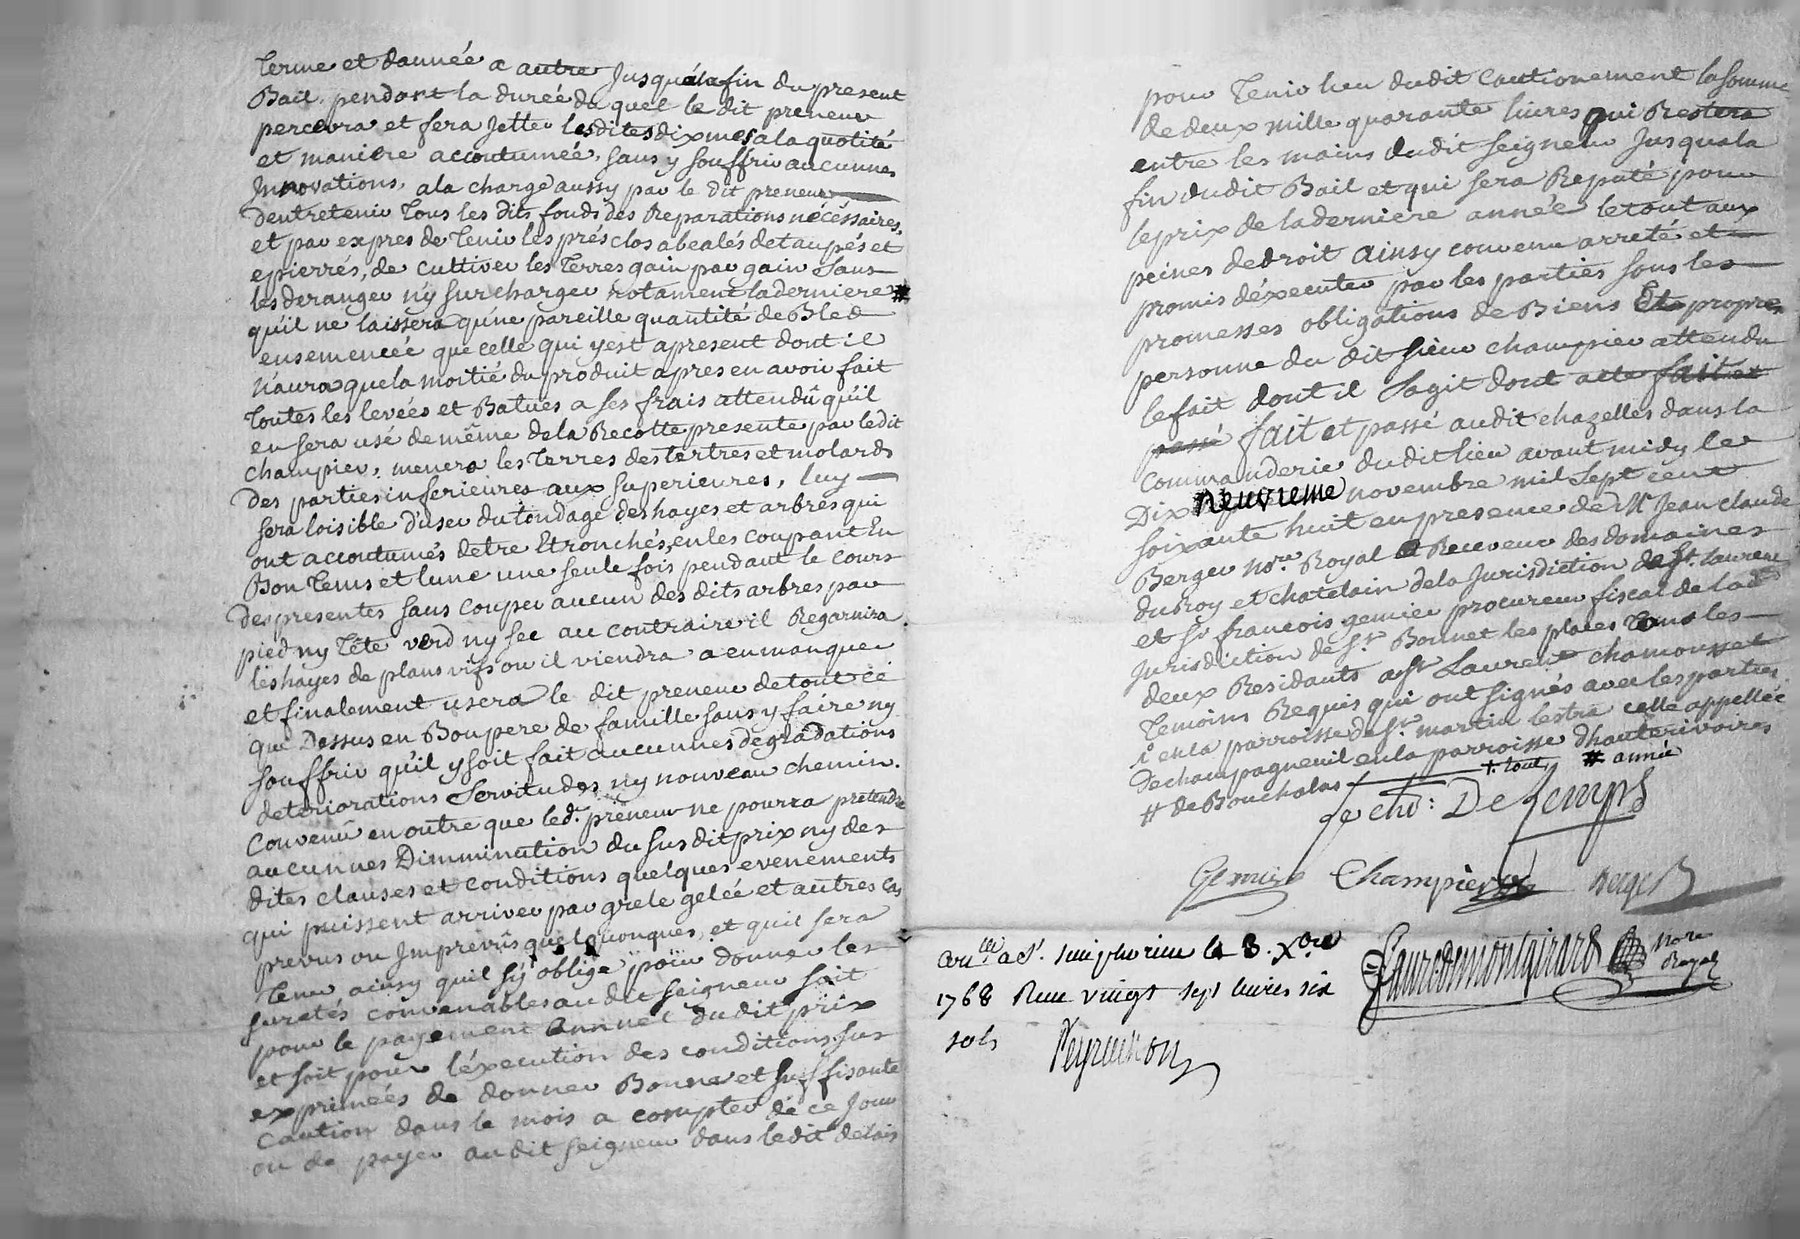 terme et dannée a autre Jusquàlafin du present
Bail. pendant la durée du quel le dit preneur
percevra et fera Jetter lesdites dixmes a la quotité
et maniere accoutumée, sans y souffrir aucunnes
Innovations, a la charge aussy par le dit preneur
dentretenir tous les dits fonds des Reparations nécéssaires,
et par expres de tenir les prés clos abealés detaupés et
epierrés, de cultiver les terres gain par gain sans
les deranger n'y surcharger notament laderniere #
qu'il ne laissera qu'une pareille quantité de Bled
ensemencée que celle qui y est apresent dont il
n'aura que la moitié du produit apres en avoir fait
toutes les levées et Batues a ses frais attendû qu'il
en sera usé de même de la Recolte presente par ledit
champier, menera les terres des tertres et molards
des parties inferieures aux superieures, luy
sera loisible d'user du tondage des hayes et arbres qui
ont accoutumés detre Etronchés, en les coupant En
Bon tems et lune une seule fois pendant le cours
des presentes sans couper aucun des dits arbres par
pied ny tête verd ny sec au contraire il Regarnira
les hayes de plans vifs ou il viendra a en manquer
et finalement usera le dit preneur de tout ce
que Dessus en Bon pere de famille sans y faire ny
souffrir qu'il y soit fait aucunnes degradations
deteriorations servitudes ny nouveau chemin.
Convenu en outre que led. preneur ne pourra pretendre
aucunnes Dimminution du susdit prix ny des
dites clauses et conditions quelques evenements
qui puissent arriver par grele gelée et autres cas
prevus ou Imprevûs quelquonques, et quil sera
tenu ainsy quil s'y oblige pour donner les
suretés convenables au dit seigneur soit
pour le payement annuel du dit prix
et soit pour l'éxecution des conditions sus
exprimées de donner Bonne et suffisante
caution dans le mois a compter de ce Jour
ou de payer audit seigneur dans ledit delais
pour tenir lieu dudit cautionement la somme
de deux mille quarante livres qui Restera
entre les mains dudit seigneur Jusquala
fin dudit Bail et qui sera Reputé pour
le prix de la derniere année le tout aux
peines de droit ainsy convenu arreté et
promis déxecuter par les parties sous les
promesses obligations de Biens Et propre
personne du dit sieur champier attendu
le fait dont il sagit dont acte fait et
passé fait et passé audit chazelles dans la
commanderie dudit lieu avant midy le
Dix neuvieme novembre mil sept cent
soixante huit en presence de Mr Jean claude
Berger nore. Royal et Receveur des domaines
du Roy et chatelain de la Jurisdiction de St. laurent
et sr francois gemier procureur fiscal de lad
Jurisdiction de St. Bonnet les places tous les
deux Residants a St Laurent chamousset
temoins Requis qui ont signés avec les parties
i en la parroisse de St. martin lestra celle appellée
de champagneuil en la parroisse dhauterivoires
# de Boucholas † tout, # année
le chr: De Lemps
Gemier Champier Berger
Faure de montgirard nore
Royal
Conlle a St. simphorien le 3. Xbre
1768 Reçu vingt sept livres six
sols
Peyrichon